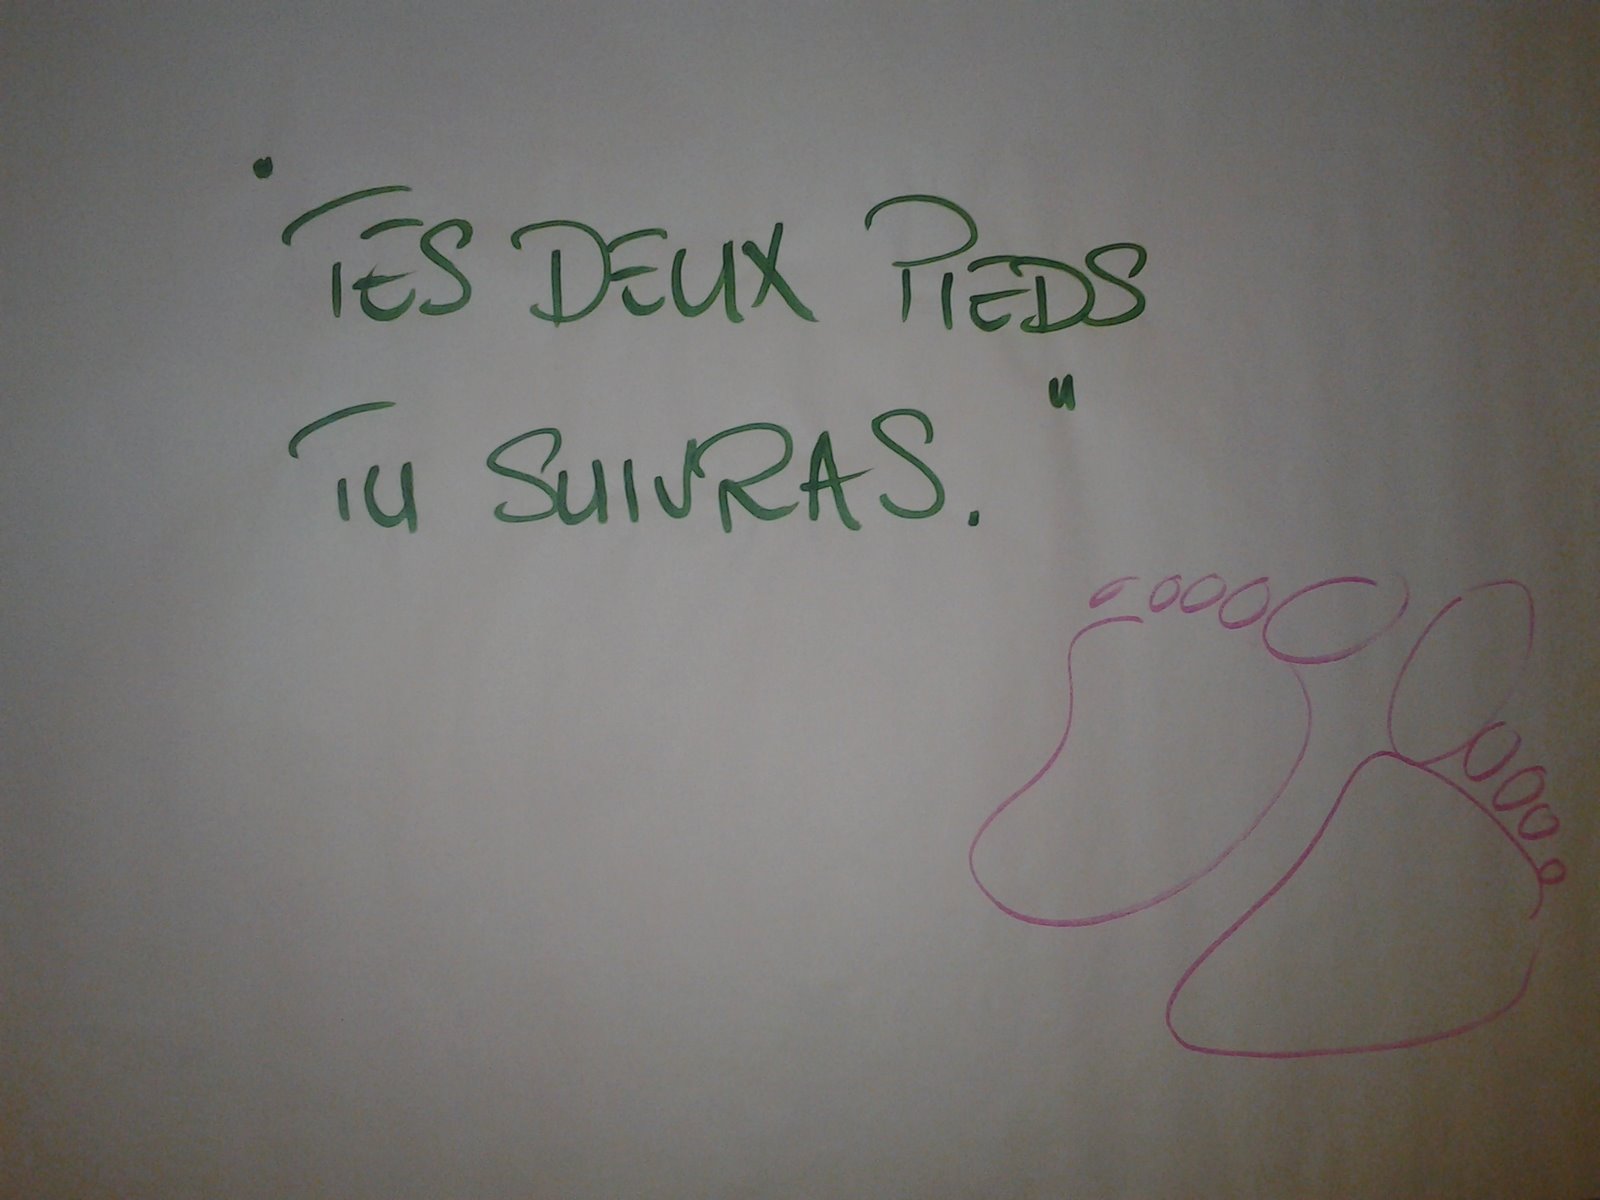 " TES DEUX PIEDS
TU SUIVRAS. "